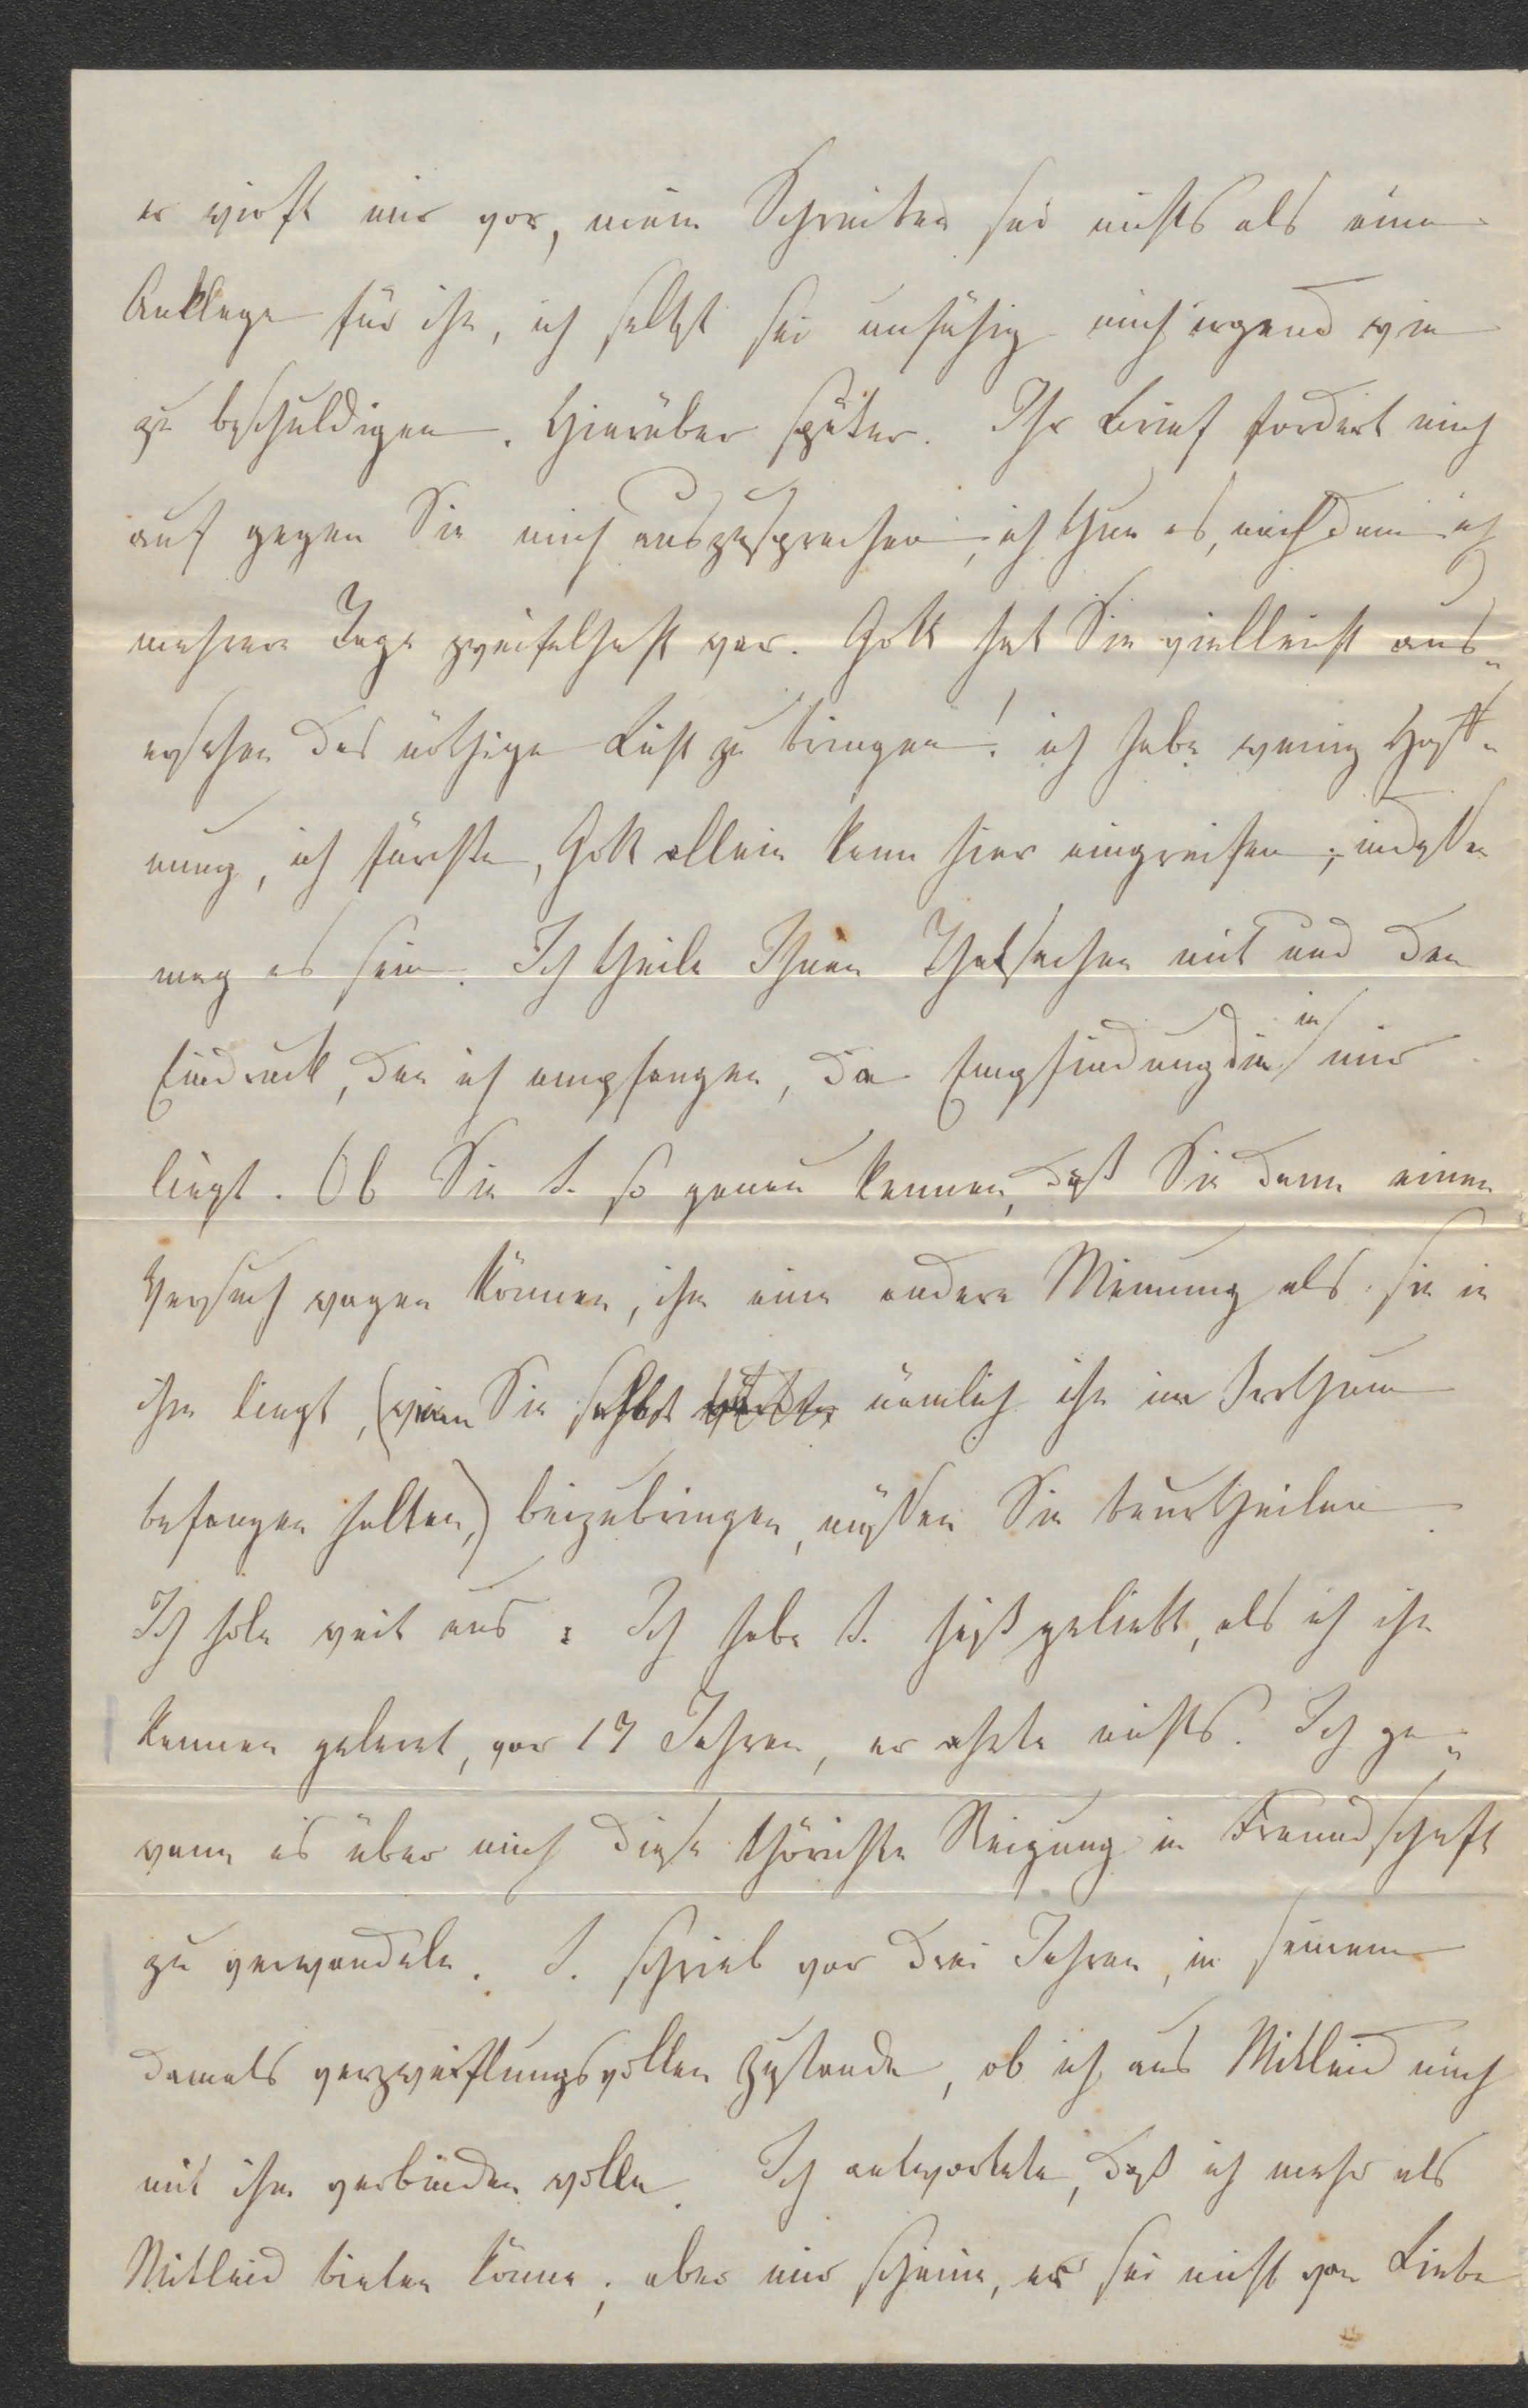 er wirft mir vor, mein Schreiben sei nichts als eine
Anklage für ihn, ich selbst sei unfähig mich irgend wie
zu beschuldigen. Hierüber später. Ihr Brief fordert mich
auf gegen Sie mich auszusprechen, ich thue es, nachdem ich
mehrere Tage zweifelhaft war. Gott hat Sie vielleicht aus-
ersehen das nöthige Licht zu bringen! ich habe wenig Hoff-
nung, ich fürchte, Gott allein kann hier eingreifen; indessen
mag es sein. Ich theile Ihnen Thatsachen mit und den
Eindruck, den ich empfangen, die Empfindung die in mir
liegt. Ob Sie S. so genau kennen, daß Sie dann einen
Versuch wagen können, ihm eine andere Meinung als sie in
ihm liegt, (wenn Sie selbst nämlich ihn im Irrthum
befangen halten,) beizubringen, müssen Sie beurtheilen.
Ich hole weit aus: Ich habe S. heiß geliebt, als ich ihn
kennen gelernt, vor 17 Jahren, er ahnte nichts. Ich ge-
wann es über mich diese thörichte Neigung in Freundschaft
zu verwandeln. S. schrieb vor drei Jahren, in seinem
damals verzweiflungsvollen Zustande, ob ich aus Mitleid mich
mit ihm verbinden wolle. Ich antwortete, daß ich mehr als
Mitleid bieten könne, aber mir scheine, es sei nicht von Liebe